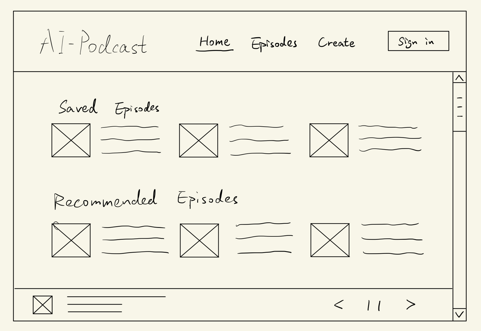 AI-Podcast Home Episodes Create Sign in
Saved Episodes
Recommended Episodes